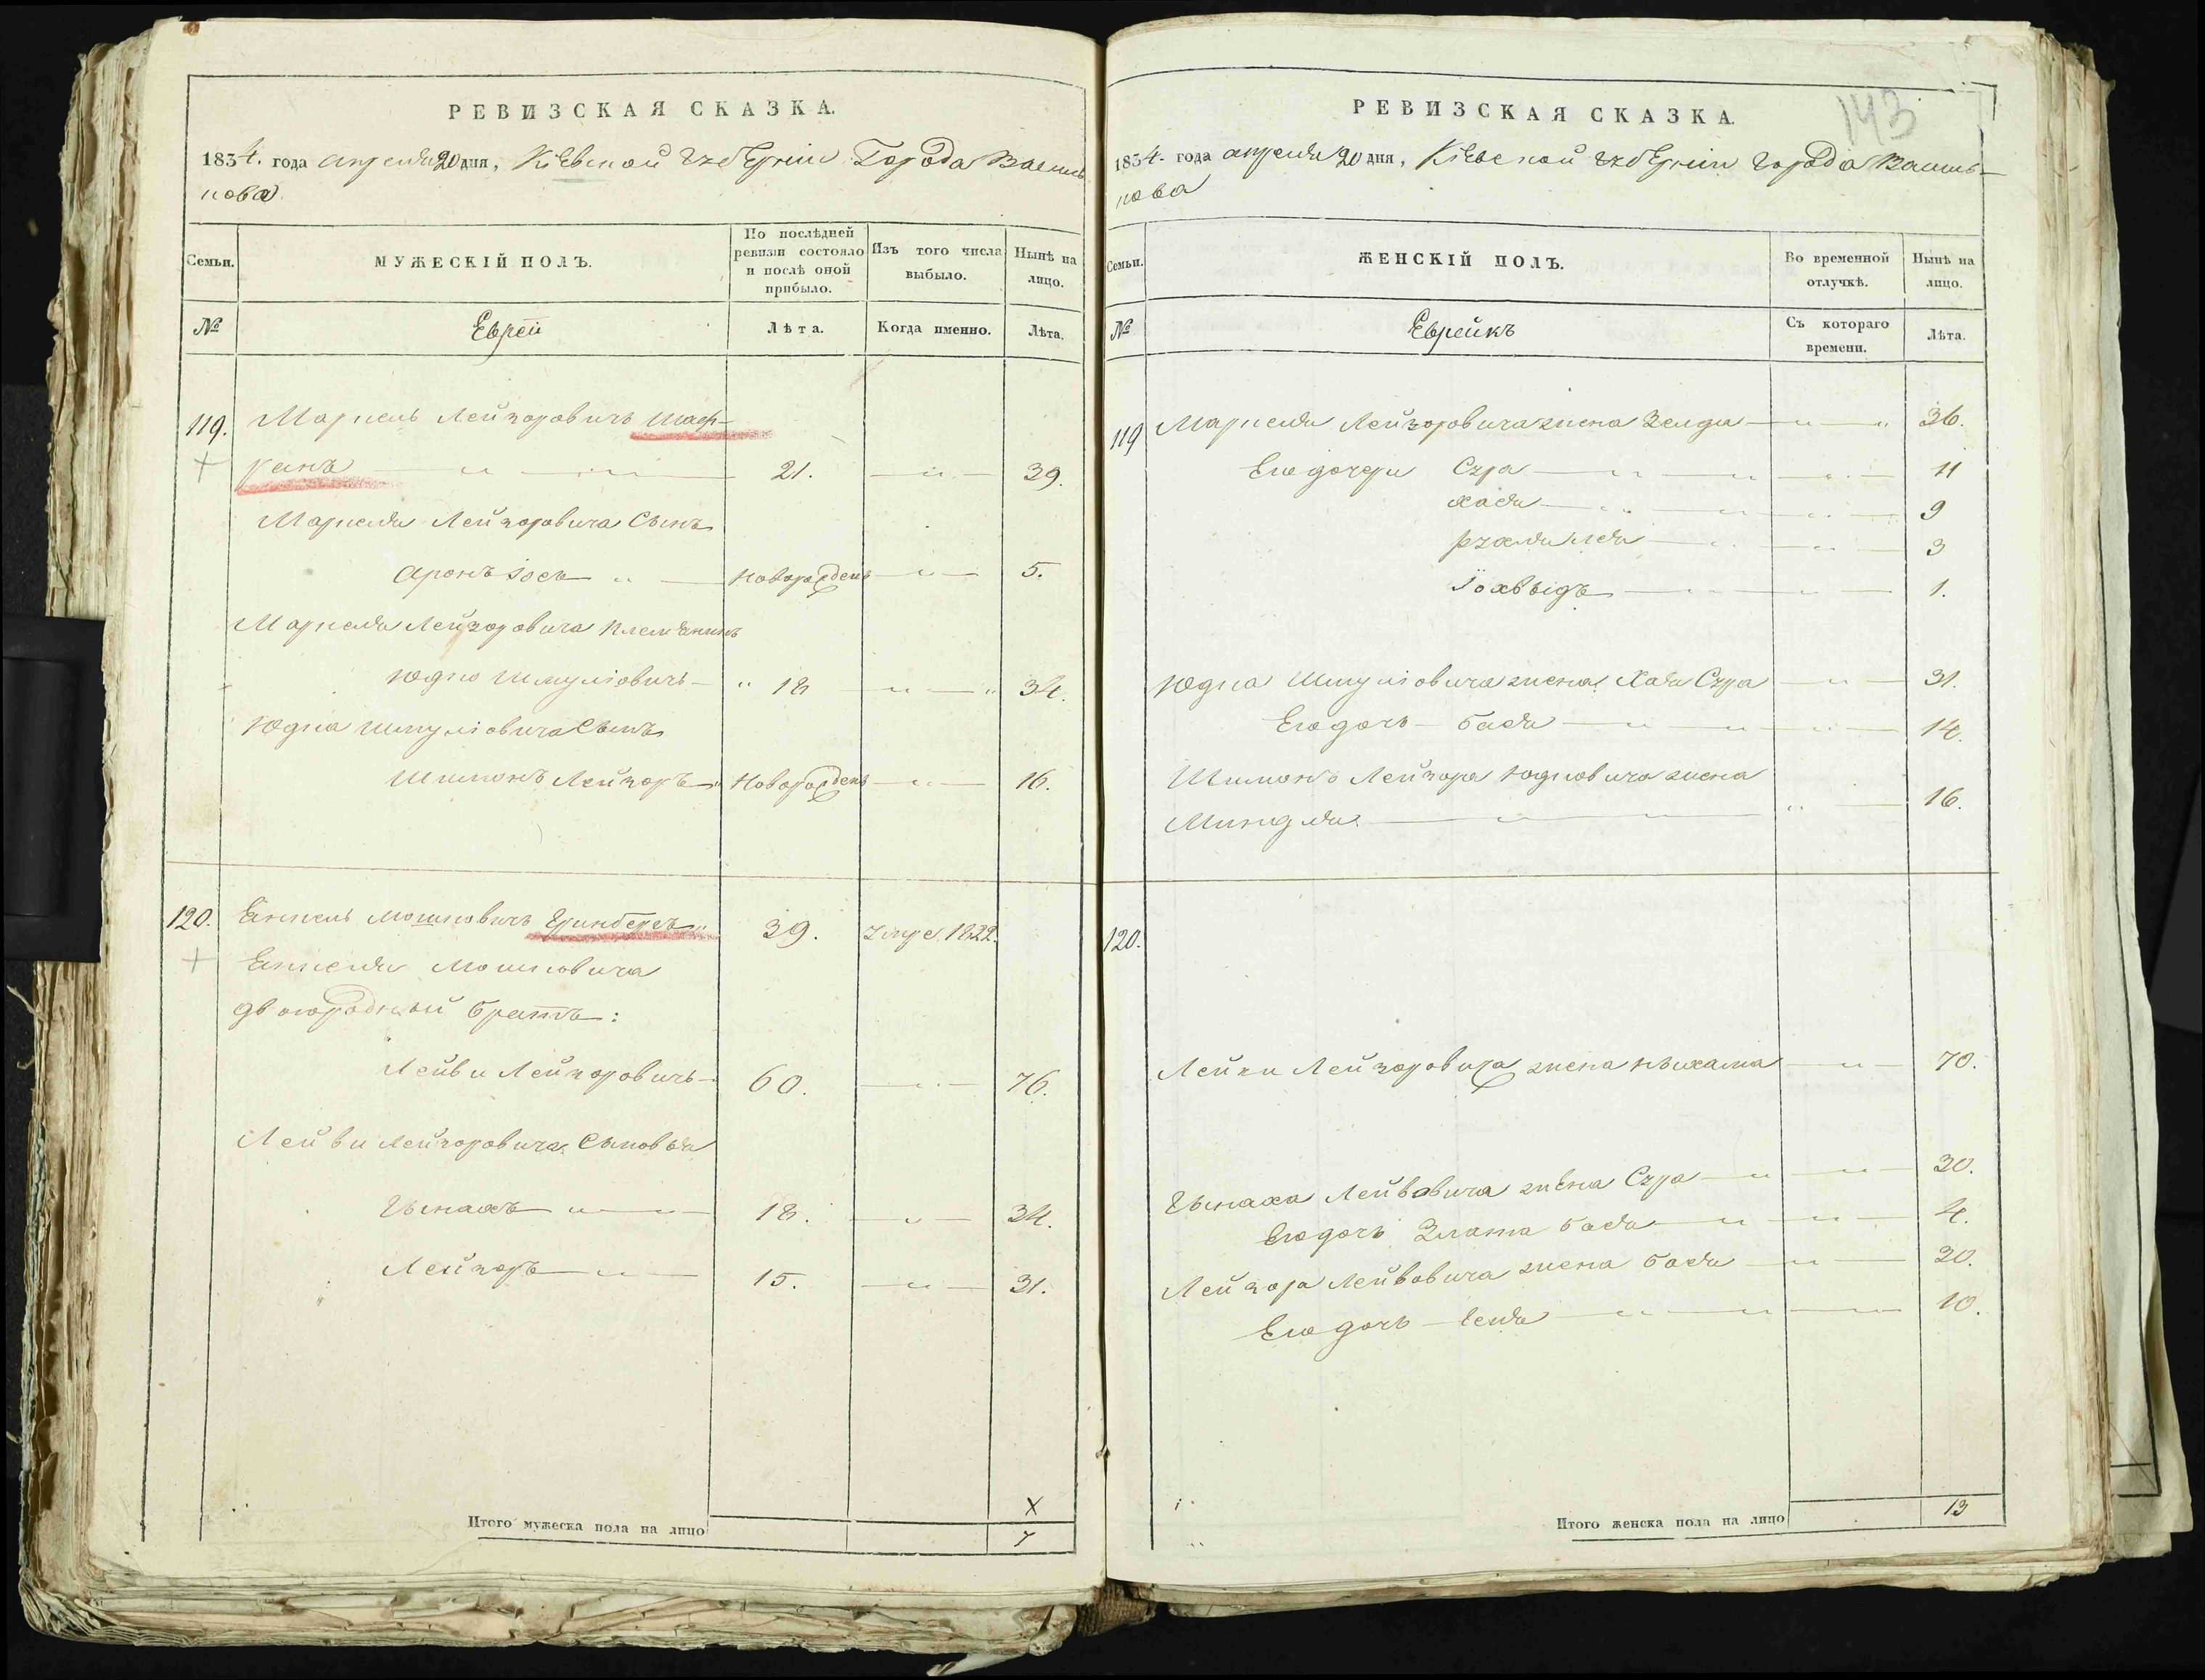 РЕВИЗСКАЯ СКАЗКА.
1834. года апреля 20 дня, Кіевской губерніи Города Василь
кова
Семьи.
МУЖЕСКІЙ ПОЛЪ.
По послѣдней ревизіи состояло и послѣ оной прибыло.
Изъ того числа выбыло.
Нынѣ на лицо.
№
Еврей
Лѣта.
Когда именно.
Лѣта.
119. Маркель Лейзоровичъ Шаф-
ранъ 21. 39.
Маркеля Лейзоровича Сынъ
Аронъ Іось новорожденъ 5.
Маркеля Лейзоровича племянникъ
Юдко Шмуліовичъ 18 34.
Юдка Шмуліовича Сынъ
Шимонъ Лейзоръ Новорожденъ 16.
120. Янкель Мошковичъ Гринбергъ 39. умре. 1822.
Янкеля Мошковича
двоюродный братъ:
Лейви Лейзоровичъ 60. 76.
Лейви Лейзоровича Сыновья
Гынахъ 18. 34.
Лейзоръ 15. 31.
Итого мужеска пола на лицо
X
7
143
РЕВИЗСКАЯ СКАЗКА.
1834. года апреля 20 дня, Кіевской губерніи города Василь-
кова
Семьи.
ЖЕНСКІЙ ПОЛЪ.
Во временной отлучкѣ.
Нынѣ на лицо.
№
Еврейкъ
Съ котораго времени.
Лѣта.
119 Маркеля Лейзоровича жена Зелда 36.
Его дочери Сура 11
Хася 9
Рухля Лея 3
Іохвыдъ 1.
Юдка Шмуліовича жена Хая Сура 31.
Его дочь Бася 14.
Шимонъ Лейзора Юдковича жена
Миндля 16.
120.
Лейви Лейзоровича жена Ныхама 70.
Гынаха Лейвовича жена Сура 30.
Его дочь Злата Бася 4.
Лейзора Лейвовича жена Бася 30.
Его дочь Лея 10.
Итого женска пола на лицо 13